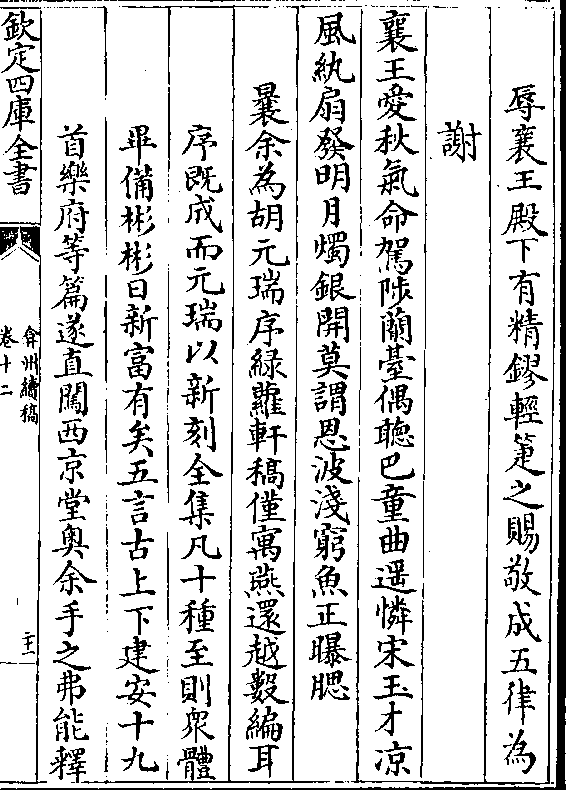 辱襄王殿下有精鏐輕箑之賜敬成五律為
謝
襄王愛秋氣命駕陟蘭臺偶聽巴童曲遥憐宋玉才凉
風紈扇發明月燭銀開莫謂恩波淺窮魚正曝腮
曩余為胡元瑞序緑蘿軒稿僅寓燕還越數編耳
序既成而元瑞以新刻全集凡十種至則衆體
畢備彬彬日新富有矣五言古上下建安十九
首樂府等篇遂直闖西京堂奥余手之弗能釋
欽定四庫全書
弇州續稿
卷十二